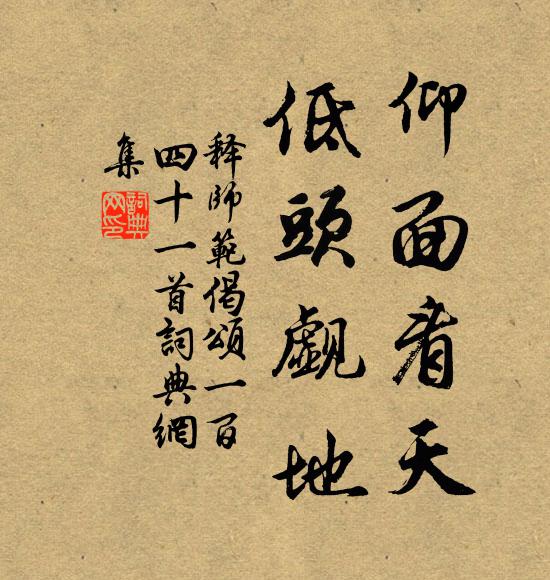 仰面看天
低頭覷地
释師範偈頌一百
四十一首詞典網
集
詞典
网印